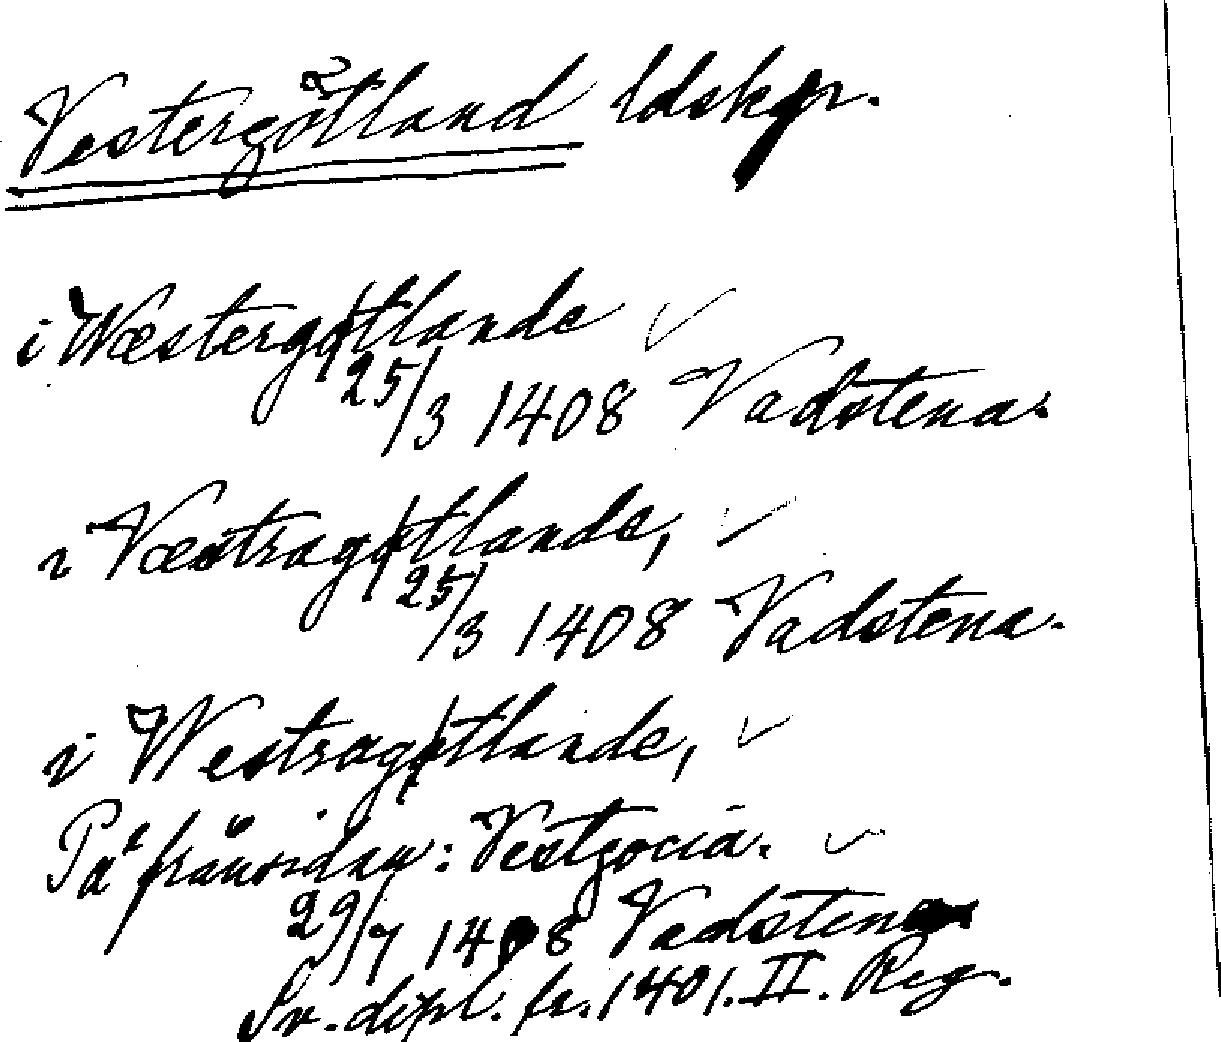 Vestergötland ldskpr.
i Wæstergøtlande
25/3 1408 Vadstena.
i Væstragøtlande,
25/3 1408 Vadstena.
i Westragøtlande,
På frånsidan: Vestgocia.
29/7 1408 Vadstena
Sv. dipl. fr. 1401. II. Reg.